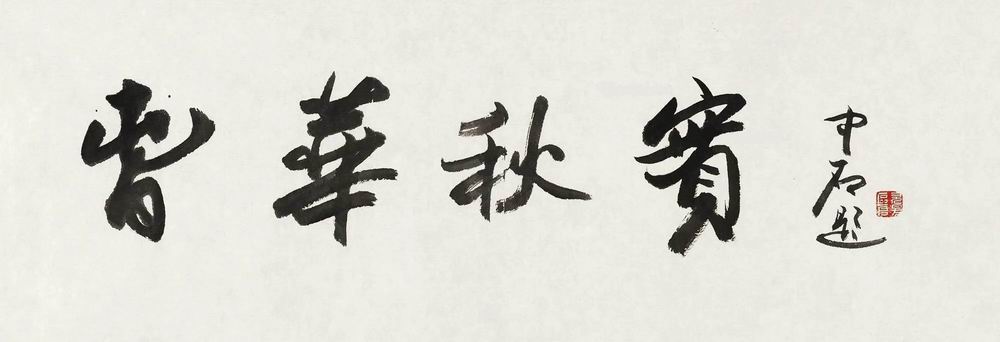 旾華秋實
中石題